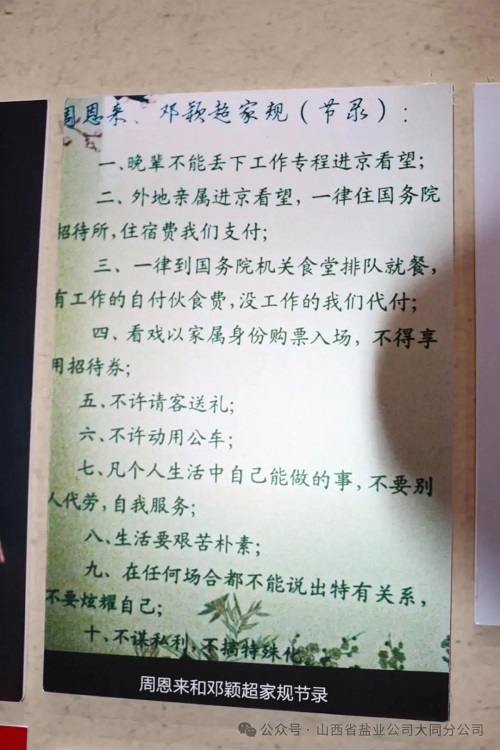 周恩来、邓颖超家规(节录):
一、晚辈不能丢下工作专程进京看望;
二、外地亲属进京看望,一律住国务院
招待所,住宿费我们支付;
三、一律到国务院机关食堂排队就餐,
有工作的自付伙食费,没工作的我们代付;
四、看戏以家属身份购票入场,不得享
用招待券;
五、不许请客送礼;
六、不许动用公车;
七、凡个人生活中自己能做的事,不要别
人代劳,自我服务;
八、生活要艰苦朴素;
九、在任何场合都不能说出特有关系,
不要炫耀自己;
十、不谋私利,不搞特殊化
周恩来和邓颖超家规节录
公众号·山西省盐业公司大同分公司